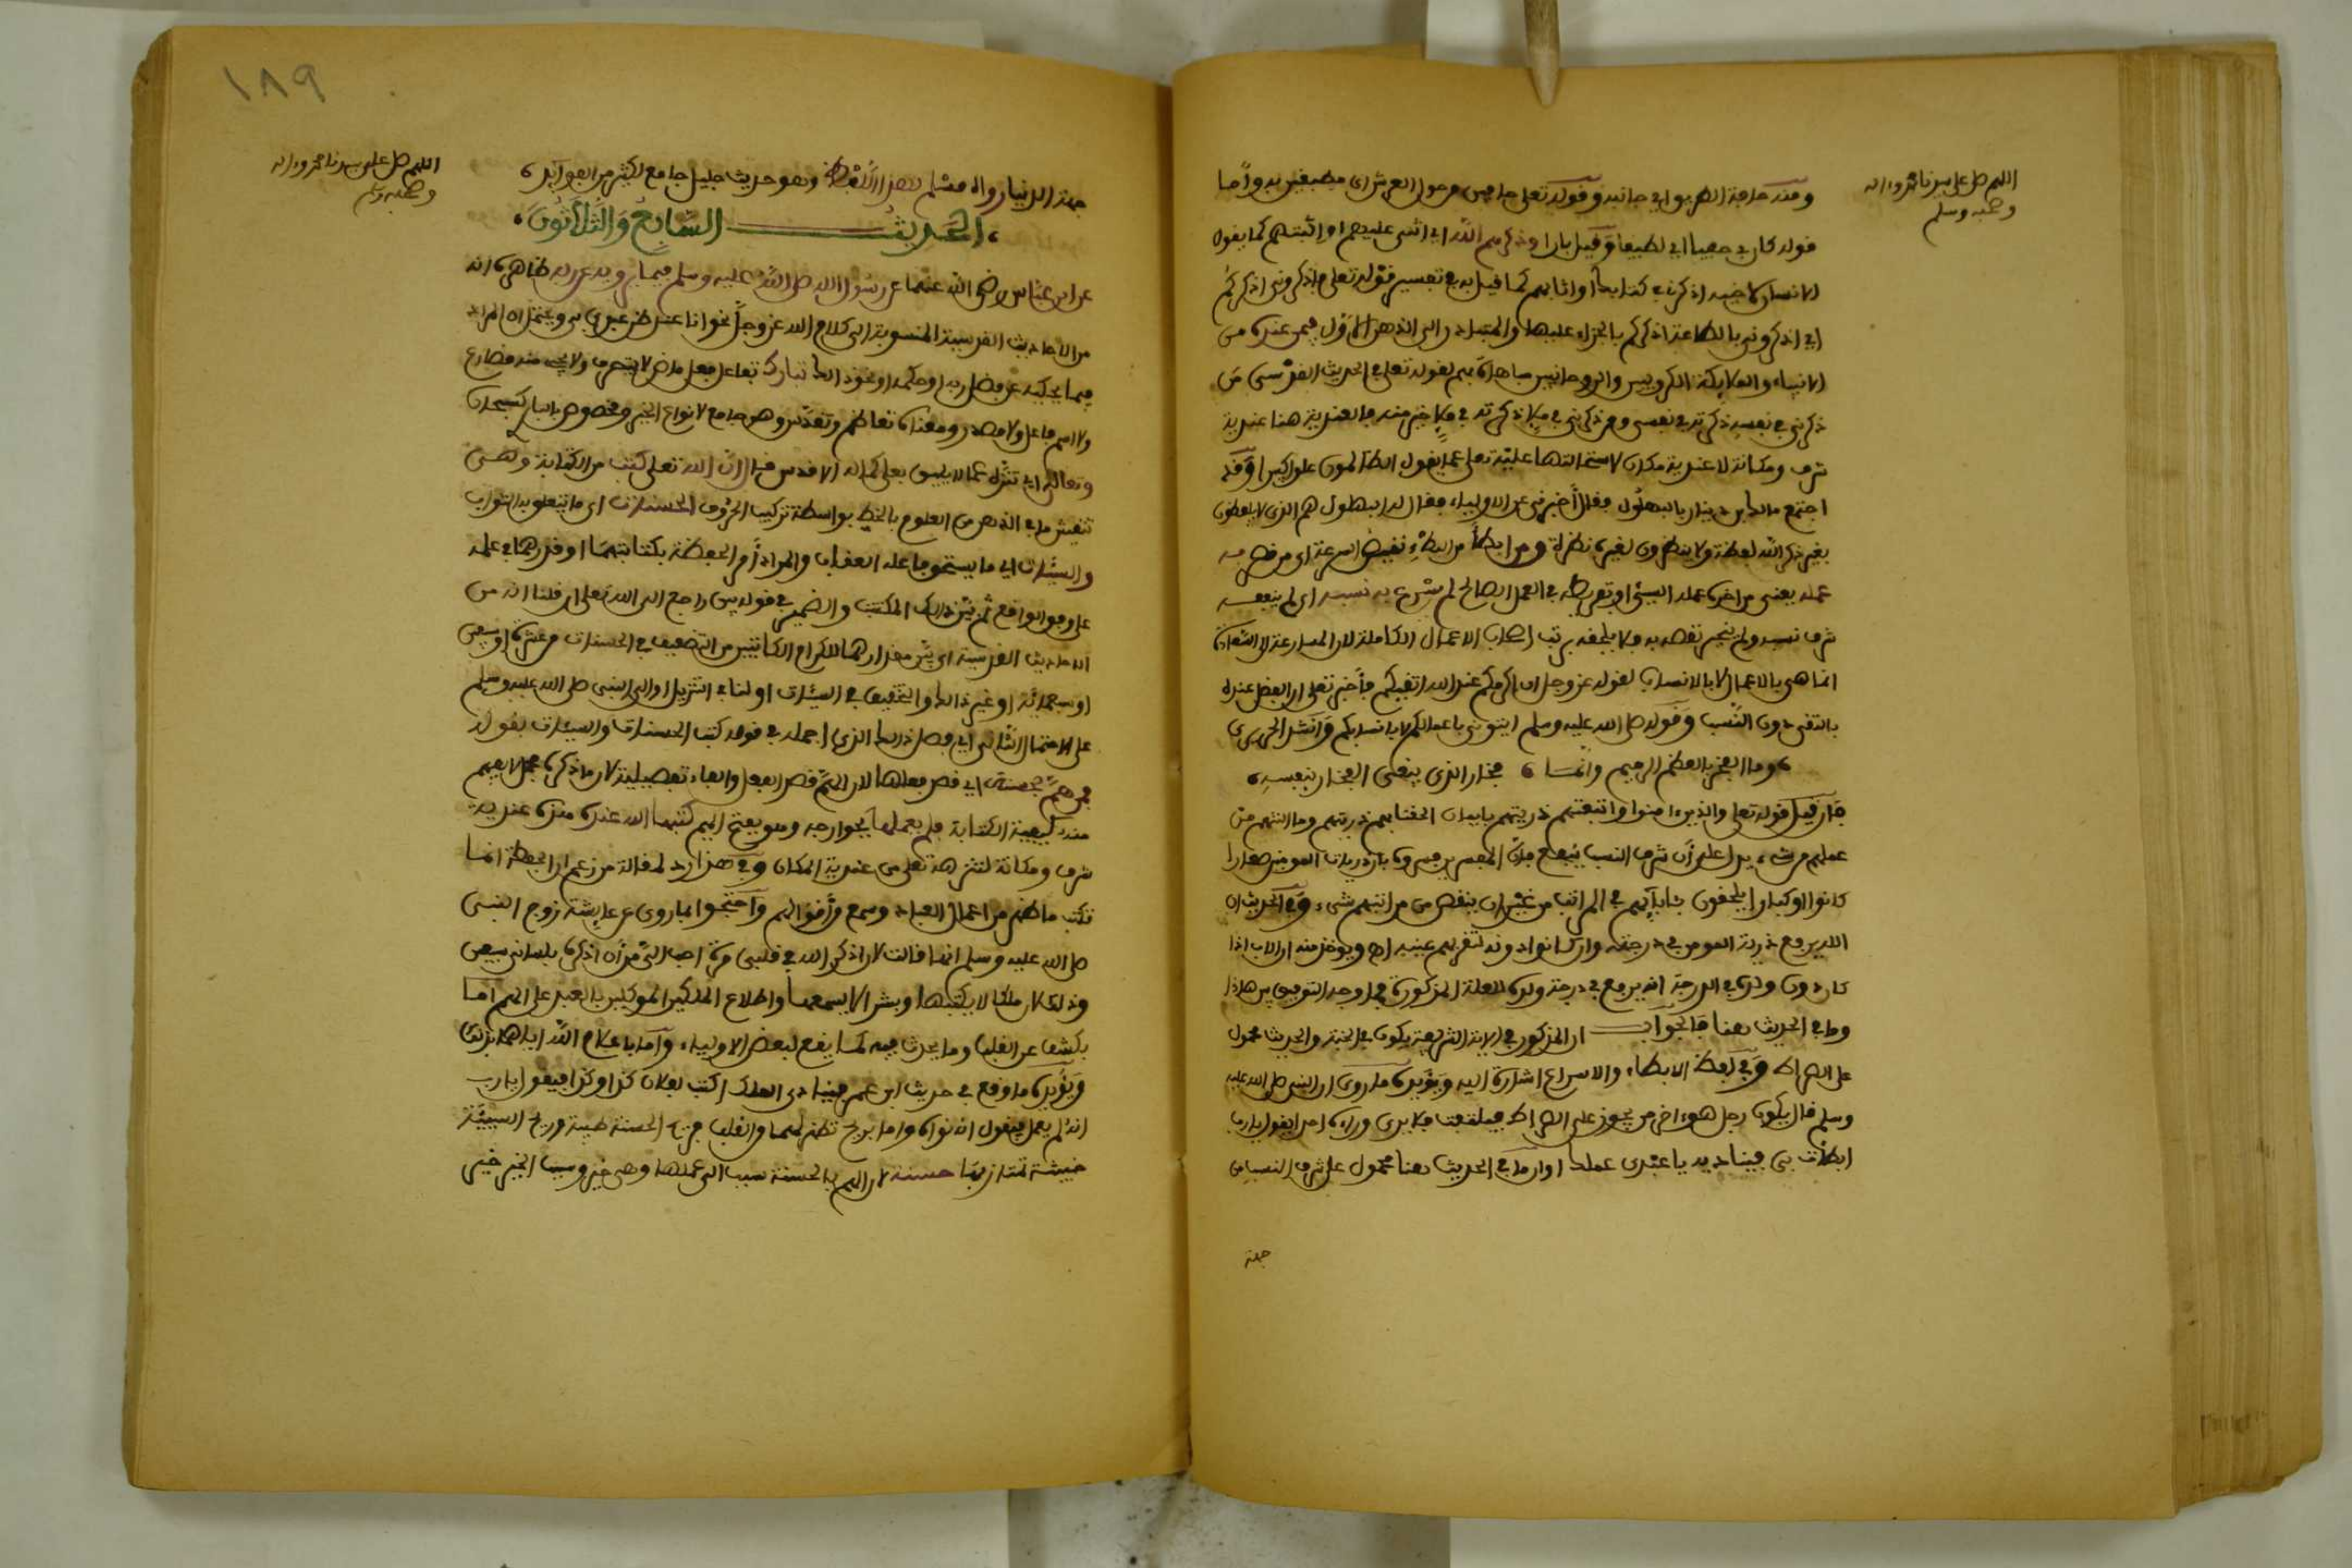 اللهم صل على سيدنا محمد وءاله
وصحبه وسلم
ومنه حافة الطريق اي جانبه وقوله تعلى حافين من حول العرش اي مطيفين به واما
قوله كان بي حفيا اي لطيفا وقيل بارا وذكرهم الله اي اثنى عليهم او اثبتهم كما يقول
الانسان لاخيه اذكرني في كتابك او اثابهم كما قيل به في تفسير قوله تعلى فاذكروني اذكركم
اي اذكروني بالطاعة اذكركم بالجزاء عليها والمتبادر الى الذهن الاول فيمن عنده من
الانبياء والملايكة الكروبيين والروحانيين مباهاة بهم لقوله تعلى في الحديث القدسي من
ذكرني في نفسه ذكرته في نفسي ومن ذكرني في ملإ ذكرته في ملإ خير منه فالعندية هنا عندية
شرف ومكانة لا عندية مكان لاستحالتها عليه تعلى عما يقول الظالمون علوا كبيرا وقد
اجتمع مالك بن دينار بالبهلول فقال أخبرني عن الاولياء فقال له البهلول هم الذين لا يلفظون
بغير ذكر الله لفظة ولا ينظرون لغيره نظرة ومن ابطأ من البطْءِ نقيض السرعة اي من قصر به
عمله يعني من اخره عمله السيئ او تفريطه في العمل الصالح لم يسرع به نسبه اي لم ينفعه
شرف نسبه ولم ينجبر نقصه به فلا يلحقه برتب اصحاب الاعمال الكاملة لان المسارعة الى السعادة
انما هي بالاعمال لا بالانساب لقوله عز وجل ان اكرمكم عند الله اتقيكم فأخبر تعلى ان الفضل عنده
بالتقى دون النسب وقوله صلى الله عليه وسلم ايتوني باعمالكم لا بانسابكم وانشد الحريري
وما الفخر بالعظم الرميم وانما ، فخار الذي يبغي الفخار بنفسه ،
فان قيل قوله تعلى والذين ءامنوا واتبعتهم ذريتهم بايمان الحقنا بهم ذريتهم وما التنهم من
عملهم من شيء يدل على أن شرف النسب ينفع فان المفسرين فسروه بان ذريات المومنين صغارا
كانوا او كبارا يلحقون بـابآيهم في المراتب من غير ان ينقص من مراتبهم شيء وفي الحديث ان
الله يرفع ذرية المومن في درجته وان كانوا دونه لتقر بهم عينه اه ويوخذ منه ان الاب اذا
كان دون ولده في الدرجة انه يرفع في درجة ولده للعلة المذكورة فما وجه التوفيق بين هذا
وما في الحديث هنا فالجواب ان المذكور في الاية الشريفة يكون في الجنة والحديث محمول
على الصراط وفي لفظ الابطاء والاسراع اشارة اليه ويؤيده ما روي ان النبي صلى الله عليه
وسلم قال يكون رجل هو ءاخر من يجوز على الصراط فيلتفت فلا يرى وراءه احدا فيقول يا رب
ابطأت بي فيناديه يا عبدي عملك او ان ما في الحديث هنا محمول على شرف النسب من
جهة
١٨٩
اللهم صل على سيدنا محمد وءاله
وصحبه وسلم
جهة الدنيا رواه مسلم بهذا اللفظ وهو حديث جليل جامع لكثير من الفوآيد ،
، الحديث السابع والثلاثون ،
عن ابن عباس رضي الله عنهما عن رسول الله صلى الله عليه وسلم فيما يرويه عن ربه ظاهره انه
من الاحاديث القدسية المنسوبة الى كلام الله عز وجل نحو انا عند ظن عبدي بي ويحتمل ان المراد
فيما يحكيه عن فضل ربه او حكمه او نحو ذلك تبارك تفاعل فعل ماض لا يتصرف ولا يجيء منه مضارع
ولا اسم فاعل ولا مصدر ومعناه تعاظم وتقدس وهو جامع لانواع الخير ومخصوص بالله كسبحان
وتعالى اي تنزه عما لا يليق بعلى كماله الاقدس قال ان الله تعلى كتب من الكتابة وهي
تنقيش ما في الذهن من العلوم بالخط بواسطة تركيب الحروف الحسنات اي ما يتعلق به الثواب
والسيئات اي ما يستحق فاعله العقاب والمراد أمر الحفظة بكتابتهما او قدرهما في علمه
على وفق الواقع ثم بين ذلك المكتب والضمير في قوله بين راجع الى الله تعلى ان قلنا انه من
الاحاديث القدسية اي بين مقدارهما للكرام الكاتبين من التضعيف في الحسنات من عشرة او سبعين
او سبعمائة او غير ذالك والتخفيف في السيئات او لنا في التنزيل او الى النبي صلى الله عليه وسلم
على الاحتمال الثاني اي فصل ذلك الذي اجمله في قوله كتب الحسنات والسيئات بقوله
فمن هم بحسنة اي قصد فعلها لان الهم قصد الفعل والفاء تفصيلية لان ما ذكره مجمل لا يفهم
منه كيفية الكتابة فلم يعملها بجوارحه وهو بفتح الميم كتبها الله عنده هذه عندية
شرف ومكانة لتنزهه تعلى عن عندية المكان وفي هذا رد لمقالة من زعم ان الحفظة انما
تكتب ما ظهر من اعمال العباد وسمع من أقوالهم واحتجوا بما روي عن عايشة زوج النبي
صلى الله عليه وسلم انها قالت لان اذكر الله في قلبي مرة احب الي من أن اذكره بلساني سبعين
وذلك لان ملكا لا يكتبها وبشرا لا يسمعها واطلاع الملكين الموكلين بالعبد على الهم اما
بكشف عن القلب وما يحدث فيه كما يقع لبعض الاولياء واما باعلام الله اياهما بذلك
ويؤيده ما وقع في حديث ابن عمر فينادي الملك اكتب لفلان كذا وكذا فيقول يا رب
انه لم يعمله فيقول انه نواه واما بريح تظهر لهما من القلب فريح الحسنة طيبة وريح السيئة
خبيثة تمتاز بها حسنة لان الهم بالحسنة سبب الى عملها وهي خير وسبب الخير خير